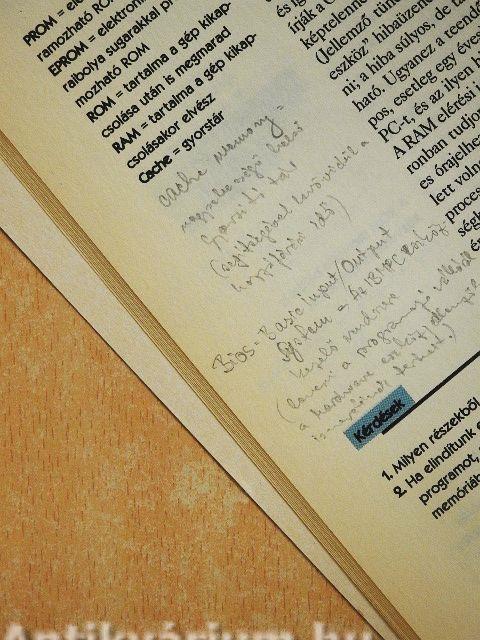 PROM = ele
ramozható RO
EPROM = elektroni
raibolya sugarakkal pr
mozható ROM
ROM = tartalma a gép kikap-
csolása után is megmarad
RAM = tartalma a gép kikap-
csolásakor elvész
Cache = gyorstár
cache memory =
nagysebességű belső
gyorsító tár
(segítségével lerövidül a
hozzáférési idő)
Bios = Basic input/Output
System = Az IBM PC
kezelő rendszere
(leveszi a programozó válláról
a hardware
terhét.)
és ig
írják a C
képtelenne
(Jellemző tüne
eszköz" hibaüzene
ni, a hiba súlyos, de t
ható. Ugyanez a teend
pos, esetleg egy éves
PC-t, és az ilyen
A RAM elérési i
ronban tudjon
es órajelhe
lett volna
proces
ségb
Kérdések
1. Milyen részekből
2. Ha elindítunk e
programot,
memóriáb
Antikvárium.hu